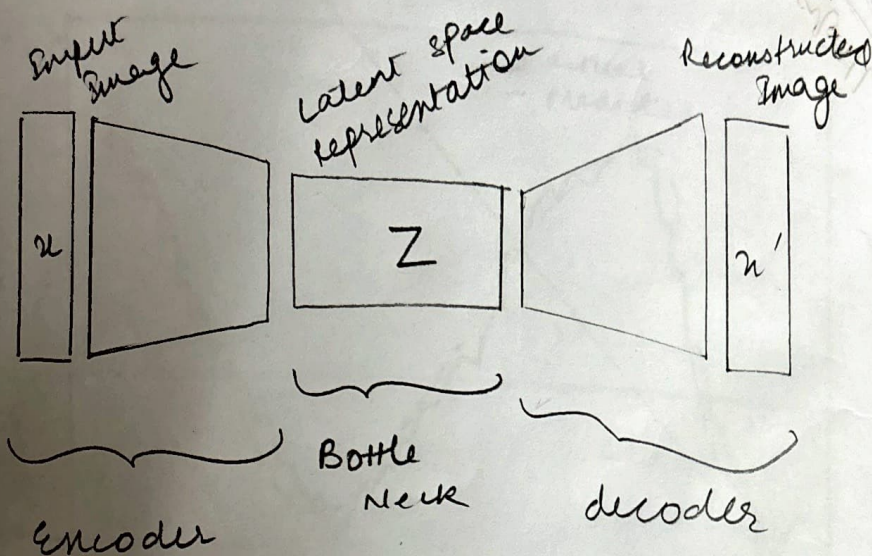 Input
Image
Latent space
representation
Reconstructed
Image
x
Z
x'
Encoder
Bottle
Neck
decoder